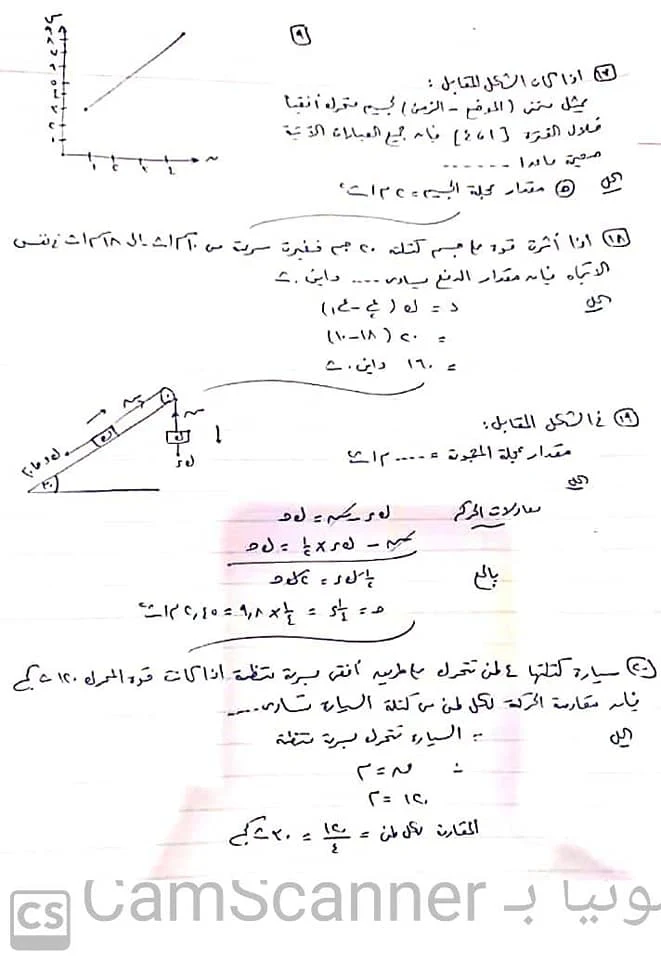 ٩
١٧ اذا كان الشكل المقابل :
يمثل منحنى (الموضع - الزمن) لجسيم متحرك أفقياً
خلال الفترة [١ ، ٤] فإن جميع العبارات الآتية
صحيحة ماعدا .......
الحل ٥ مقدار عجلة الجسيم = ٢ م/ث²
١٨ اذا أثرت قوة على جسم كتلته ٢٠ جم فغيرت سرعته من ١٠ سم/ث إلى ١٨ سم/ث في نفس
الاتجاه فإن مقدار الدفع يساوى .... داين . ث
الحل د = ك ( ع٢ - ع١ )
= ٢٠ ( ١٨ - ١٠ )
= ١٦٠ داين . ث
١٩ في الشكل المقابل :
مقدار عجلة المجموعة = .... م/ث²
الحل
ك
ك
ك د
ك د حا ٣٠
٣٠
معادلات الحركة ك د - ش = ك حـ
ش - ك د × ½ = ك حـ
بالجمع ½ ك د = ٢ ك حـ
حـ = ¼ د = ¼ × ٩,٨ = ٢,٤٥ م/ث²
٢٠ سيارة كتلتها ٤ طن تتحرك على طريق أفقى بسرعة منتظمة اذا كانت قوة المحرك ١٢٠ ث كجم
فإن مقاومة الحركة لكل طن من كتلة السيارة تساوى ....
الحل ∵ السيارة تتحرك بسرعة منتظمة
∴ ق = م
١٢٠ = م
المقاومة لكل طن = ١٢٠/٤ = ٣٠ ث كجم
CS CamScanner ضوئيا بـ